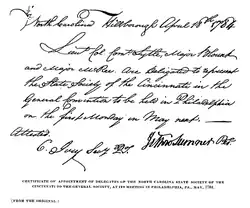 North Carolina Hillsborough April 18th 1784.
Lieut Col Comt Lytle, Major
and Major McRee are Delegated to represent
the State Society of the Cincinnati in the
General Convention to be held in Philadelphia
on the first Monday in May next.
Attested.
Jethro Sumner Pst.
CERTIFICATE OF APPOINTMENT OF DELEGATES OF THE NORTH CAROLINA STATE SOCIETY OF THE
CINCINNATI TO THE GENERAL SOCIETY, AT ITS MEETING IN PHILADELPHIA, PA., MAY, 1784.
(FROM THE ORIGINAL.)